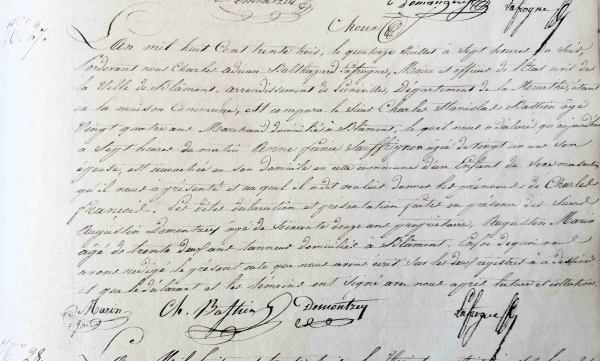 Demontzey Demangeot Lafrogne
Choux
N° 27.
L'an mil huit Cent trente trois, le quatorze Juillet à Sept heures du Soir,
Pardevant nous Charles Adrian Balthazard Lafrogne, Maire et officier de l'Etat civil de
la Ville de Blâmont, arrondissement de Lunéville, Département de la Meurthe, étant
en la maison Commune, Est comparu le Sieur Charles Stanislas Basthien âgé
Vingt quatre ans Marchand domicilié à Blâmont, lequel nous a déclaré qu'aujourd'hui
à Sept heures du matin Anne agée de vingt un ans son
épouse, est accouchée en son domicile en cette commune d'un Enfant de Sexe masculin
qu'il nous a présenté et auquel il a dit vouloir donner les prénoms de Charles
François. Les dites déclaration et présentation faites en présence des Sieurs
Augustin Demontzey âgé de Soixante douze ans propriétaire, Augustin Marin
âgé de trente deux ans tanneur domiciliés à Blâmont. En foi de quoi nous
avons rédigé le présent acte que nous avons écrit sur les deux registres à ce destinés
et que le déclarant et les témoins ont signé avec nous après lecture et collation.
Marin Ch. Basthien Demontzey Lafrogne
N° 28.
L'an Mil huit